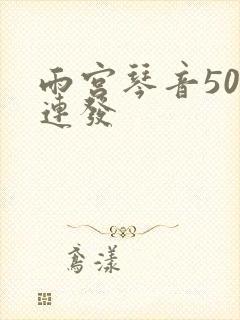 雨宫琴音50
連發
鸢漾